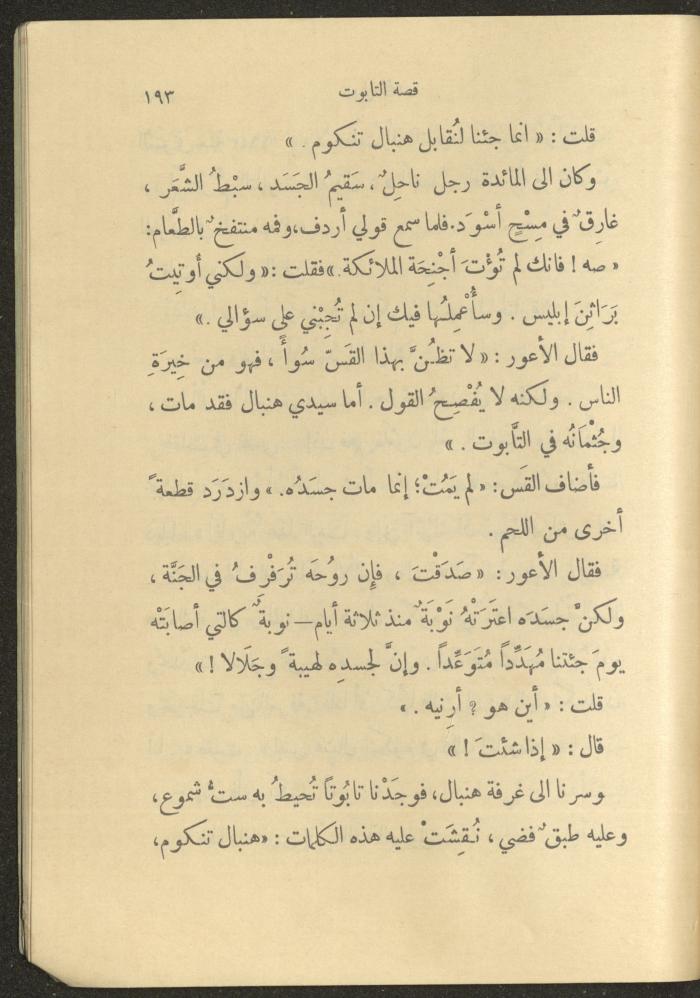 قصة التابوت ١٩٣
قلت : « انما جئنا لنُقابل هنبال تنكوم . »
وكان الى المائدة رجل ناحِلٌ ، سَقيمُ الجَسَد ، سبْطُ الشَّعَر ،
غارِقٌ في مِسْحٍ أسْوَد. فلما سمع قولي أردف، وفمه منتفخٌ بالطَّعام:
« صه ! فانك لم تُؤْتَ أجْنِحَة الملائكة. » فقلت : « ولكني أوتِيتُ
بَرَاثِنَ إبليس . وسأُعْمِلُها فيك إن لم تُجِبْني على سؤالي . »
فقال الأعور : « لا تظُنَّ بهذا القَسّ سُوأً ، فهو من خِيرَةِ
الناس . ولكنه لا يُفْصِحُ القول . أما سيدي هنبال فقد مات ،
وجُثْمَانُه في التَّابوت . »
فأضاف القَس : « لم يَمُتْ؛ إنما مات جسَدُه. » وازدَرَد قطعةً
أخرى من اللحم .
فقال الأعور : « صَدَقْتَ ، فإِن روُحَه تُرَفْرِفُ في الجَنَّة ،
ولكنَّ جسَدَه اعتَرَتْهُ نَوْبَةٌ منذ ثلاثة أيام — نوبةٌ كالتي أصابَتْه
يومَ جئتنا مُهَدِّداً مُتَوَعِّداً . وإنَّ لجسدِه لهيبةً وجَلَالا ! »
قلت : « أين هو ؟ أرِنيه . »
قال : « إذا شئتَ ! »
وسرنا الى غرفة هنبال، فوجَدْنا تابُوتاً تُحيطُ به ستُّ شموع ،
وعليه طبقٌ فضي ، نُقِشَتْ عليه هذه الكلمات : « هنبال تنكوم،